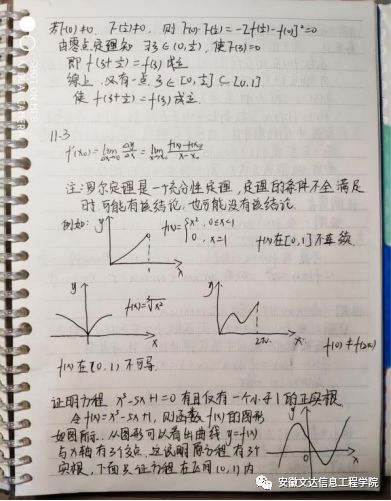 若F(0)≠0, F(½)≠0, 则 F(0)·F(½)=-[f(½)-f(0)]²=0
由零点定理知 ∃ξ∈(0,½), 使F(ξ)=0
即 f(ξ+½)=f(ξ) 成立
综上 必有一点 ξ∈[0,½]⊆[0,1]
使 f(ξ+½)=f(ξ) 成立.
11-3
f'(x₀)=lim Δx→0 Δy/Δx = lim x→x₀ f(x)-f(x₀)/x-x₀
注:罗尔定理是一个充分性定理, 定理的条件不全满足
时,可能有该结论,也可能没有该结论.
例如: y f(x)={x², 0≤x<1
0, x=1
f(x)在[0,1]不连续
x
y f(x)=∛x² x
y 2π x f(0)≠f(2π)
f(x)在(0,1)不可导
证明方程 x⁵-5x+1=0 有且仅有一个小于1的正实根
令f(x)=x⁵-5x+1, 则函数f(x)的图形
如图所示. 从图形可以看出曲线 y=f(x)
与x轴有3个交点, 这说明原方程有3个
实根, 下面只证方程在区间(0,1)内
y x
SHOT ON
安徽文达信息工程学院